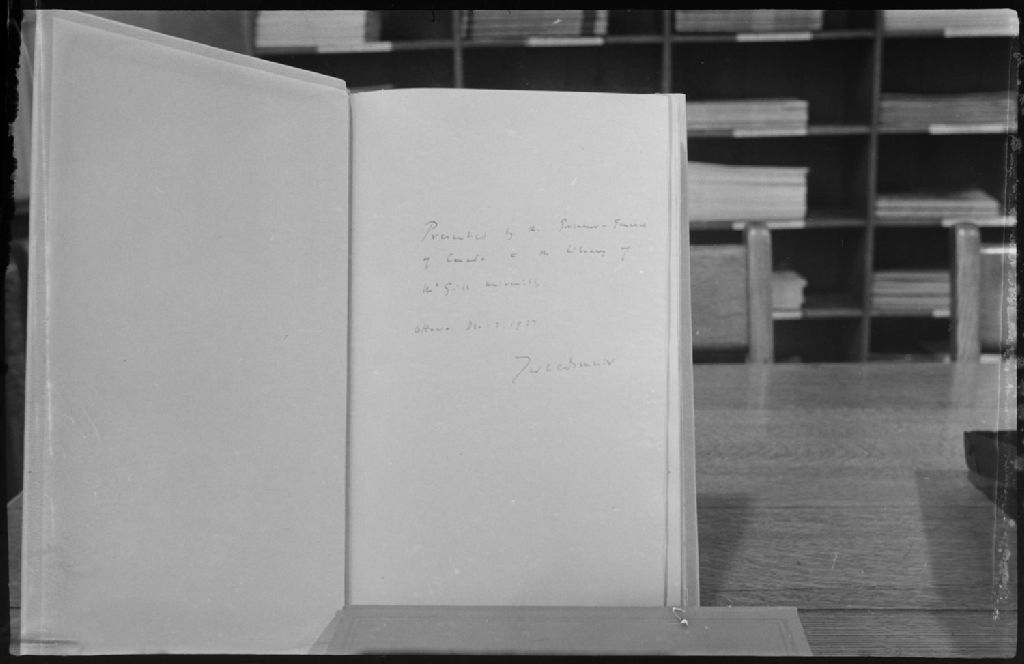 Presented by the Governor-General
of Canada to the Library of
McGill University
Ottawa Dec. 1937
Tweedsmuir